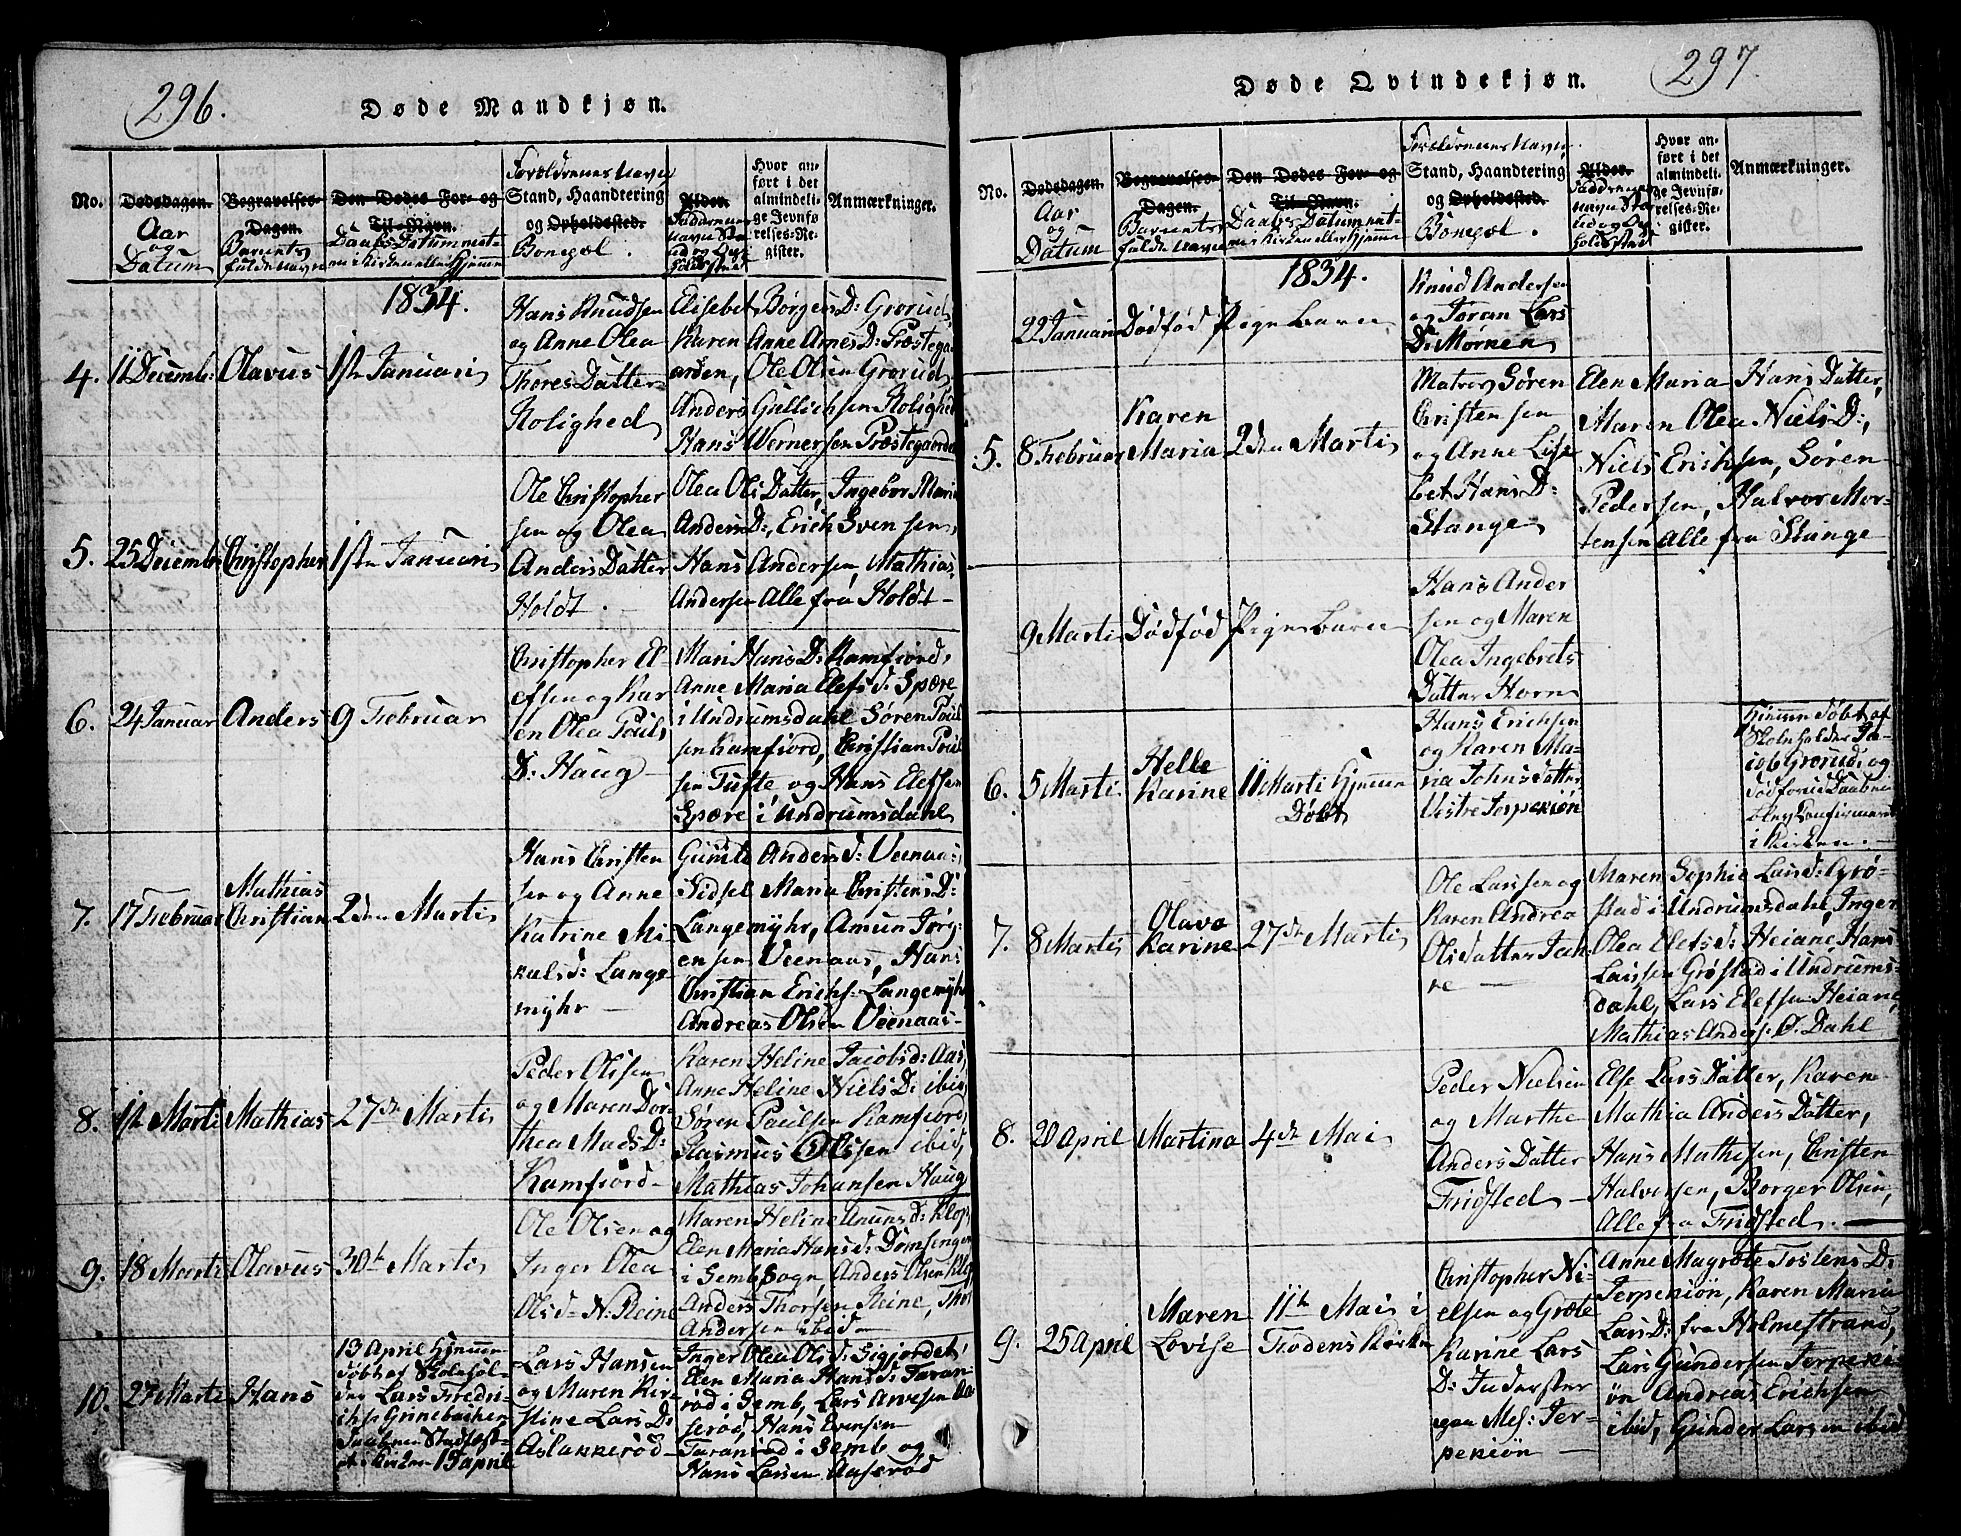 296.
Døde Mandkjøn.
No.
Dødsdagen.
Aar
og
Datum
Begravelses-
Dagen.
Barnets
fulde Navn
Den Dødes For- og
Til-Navn.
Daabs-Datum net-
en i Kirken eller Hjemme
Forældrenes Navn
Stand, Haandtering
og Opholdssted.
Bopæl.
Alder.
Faddrenes
Navn Sta
nd og Op-
holdssted
Hvor an-
ført i det
almindeli-
ge Jevnfø
relses-Re-
gister.
Anmærkninger.
1834.
4. 11 Decemb: Olavus 1ste Januari
Hans Knudsen
og Anne Olea
Thores Datter
Rolighed
Elisebet Børgers D: Grorud,
Karen Anne Arnes D: Præstega-
arden, Ole Olsen Grorud,
Anders Gullichsen Rolighed
Hans Wernersen Præstegaarden
5. 25 Decembr Christopher 1ste Januari
Ole Christopher
sen og Olea
Anders Datter
Holdt.
Olea Ols Datter, Ingebor Maria
Anders D:, Erich Svensen,
Hans Andersen, Mathias
Andersen Alle fra Holdt
6. 24 Januar Anders 9 Februar
Christopher El-
efsen og Kar
en Olea Pouls
D: Haug
Mari Hans D: Kamfiord,
Anne Maria Elefs d: Spære
i Undrumsdahl Søren Poul
sen Kamfiord, Christian Poul
sen Tufte og Hans Elefsen
Spære i Undrumsdahl
7. 17 Februar Mathias
Christian 2den Marti
Hans Christen
sen og Anne
Katrine Mi-
kels d: Lange
myhr
Gunild Anders d: Veenaas,
Sidsel Maria Christens D:
Langemyhr, Amun Jørg-
ensen Veenaas, Hans
Christian Erichs: Langemyhr
Andreas Olsen Veenaas
8. 1st Marti Mathias 27de Marti
Peder Olssen
og Maren Dor-
thea Mads D:
Kamfiord
Karen Heline Jacobs d: Aas,
Anne Heline Niels D: ibid,
Søren Paulsen Kamfiord,
Rasmus Olssen ibid,
Mathias Johansen Haug
9. 18 Marti Olavus 30te Marti
Ole Olsen og
Inger Olea
Ols d: N. Reine
Maren Heline Amuns d: Klop
Elen Maria Hans d: Domsengen
i Semb Sogn Anders Olsen Klop
Anders Thorsen Reine, Thor
Andersen ibid
10. 27 Marti Hans
13 April Hjemme
døbt af Skolehol-
der Lars Fredri-
chs: Grinebacken
Daaben Stadfæst-
et i Kirken 19 april
Lars Hansen
og Maren Kir-
stine Lars D:
Aslakkerød
Inger Olea Ols d: Sigjordet,
Elen Maria Hans d: Taran-
rød i Semb, Lars Arvesen Aa-
serød, Hans Evensen
Taranrød i Semb og
Hans Larsen Aaserød
297.
Døde Qvindekjøn.
No.
Dødsdagen.
Aar
og
Datum
Begravelses-
Dagen.
Barnets
fulde Navn
Den Dødes For- og
Til-Navn.
Daabs-Datum net-
en i Kirken eller Hjemme
Forældrenes Navn
Stand, Haandtering
og Opholdssted.
Bopæl.
Alder.
Faddrenes
Navn Sta
nd og Op-
holdssted
Hvor an-
ført i det
almindeli-
ge Jevnfø-
relses-Re-
gister.
Anmærkninger.
1834.
22 Januari Dødfød Pigebarn
Knud Andersen
og Joran Lars
D: Mørken
5. 8 Februar Karen
Maria 2den Marti
Matros Søren
Christensen
og Anne Lise
bet Hans D:
Stange
Elen Maria Hans Datter,
Maren Olea Niels D:,
Niels Erichsen, Søren
Pedersen, Halvor Mor-
tensen Alle fra Stange
9 Marti Dødfød Pigebarn
Hans Ander
sen og Maren
Olea Ingebrets
Datter Horn
6. 5 Marti. Helle
Karine 11 Marti Hjemme
Døbt
Hans Erichsen
og Karen Ma-
ria Johns datter
Vestre Jerpekiøn
Hiemme døbt af
Skoleholder Ja-
cob Grorud, og
Daaben
blev Confirmeret
i Kirken.
7. 8 Marti Olava
Karine 27de Marti
Ole Larsen og
Karen Andrea
Ols datter Jah
re
Maren Sophie Lars d: Grø-
stad i Undrumsdahl, Inger
Olea Elefs d: Heiane, Hans
Larssen Grøstad i Undrums-
dahl, Lars Elefsen Heiane,
Mathias Anders: Ø. Dahl
8. 20 April Martina 4de Mai
Peder Nielsen
og Marthe
Anders Datter
Fridsted
Else Lars Datter, Karen
Mathia Anders Datter,
Hans Mathisen, Christen
Halvorsen, Børger Olsen,
Alle fra Fridsted.
9. 25 April Maren
Lovise 11te Mai i
Frodens Kirke
Christopher Ni-
elsen og Grete
Karine Lars
D: Inderster
Mes: Jer-
pekiøn
Anne Magrete Tostens D:
Jerpekiøn, Karen Maria
Lars D: fra Holmestrand,
Lars Gundersen Jerpeki-
øn Andreas Erichsen
ibid, Gunder Larsen ibid